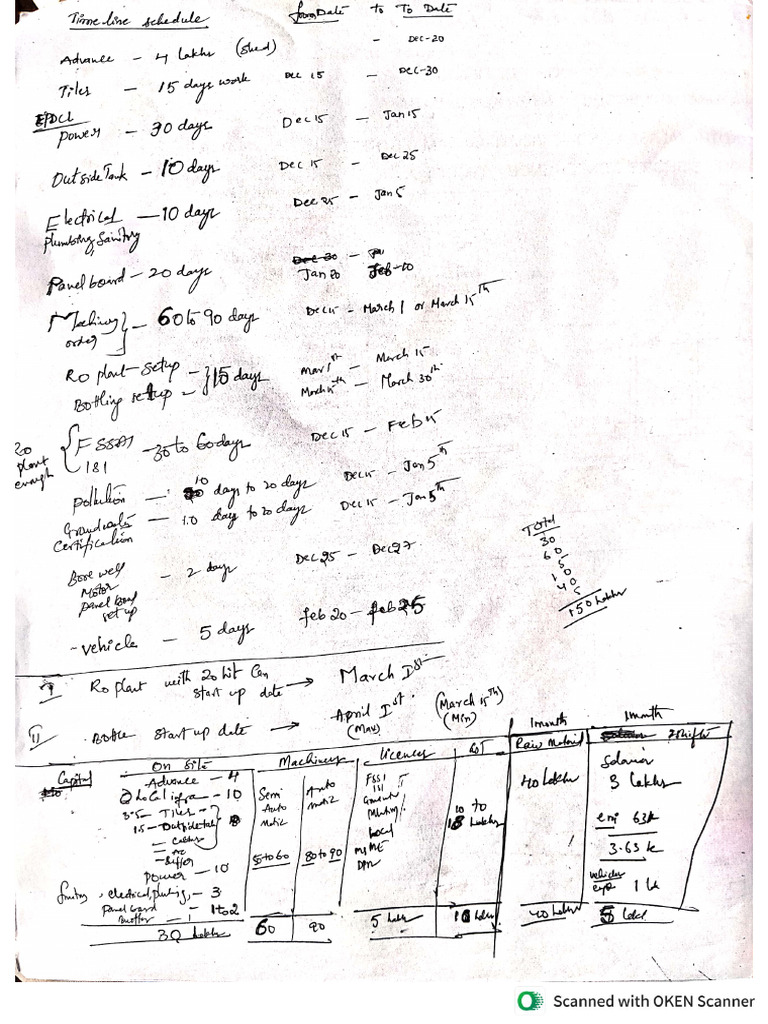 Time line schedule from Date to To Date
Advance - 4 lakhs (shed) - Dec-20
Tiles - 15 days work Dec 15 - Dec-30
EPDCL
power - 30 days Dec 15 - Jan 15
Outside Tank - 10 days Dec 15 - Dec 25
Electrical - 10 days Dec 25 - Jan 5
plumbing, Sanitory
Panel board - 20 days Jan 20 Feb-10
Machinery - 60 to 90 days Dec 15 - March 1 or March 15th
order
Ro plant - setup - 15 days Mar 1st - March 15
Bottling setup - March 15th - March 30th
Ro plant enough
FSSAI - 30 to 60 days Dec 15 - Feb 15
ISI
pollution - 10 days to 20 days Dec 15 - Jan 5th
Ground water - 10 days to 20 days Dec 15 - Jan 5th
Certification
Bore well - 2 days Dec 25 - Dec 27
Motor
panel board
set up
vehicle - 5 days feb 20 - feb 25
Total
30
60
5
10
40
5
150 lakhs
I) Ro plant with 20 lit Can
start up date → March Ist
II) Bottle start up date → April Ist (March 15th)
(Max) (Min)
1 month 1 month
Capital On Site Machinery Licences Raw Material 2 shift
Advance - 4
Local infra - 10
3.5 Tiles -
15 - Outside tank 8
Power - 10
electrical, - 3
Panel board
Buffer - 1 to 2
30 lakhs
Semi Auto Matic
Auto matic
50 to 60 80 to 90
60 90
FSSI
ISI
Local
MSME
5 lakhs
10 to
18 lakhs
10 lakhs
40 lakhs
40 lakhs
3 lakhs
emi 63k
3.63 k
vehicles
exp 1 lk
5 lakh
Scanned with OKEN Scanner